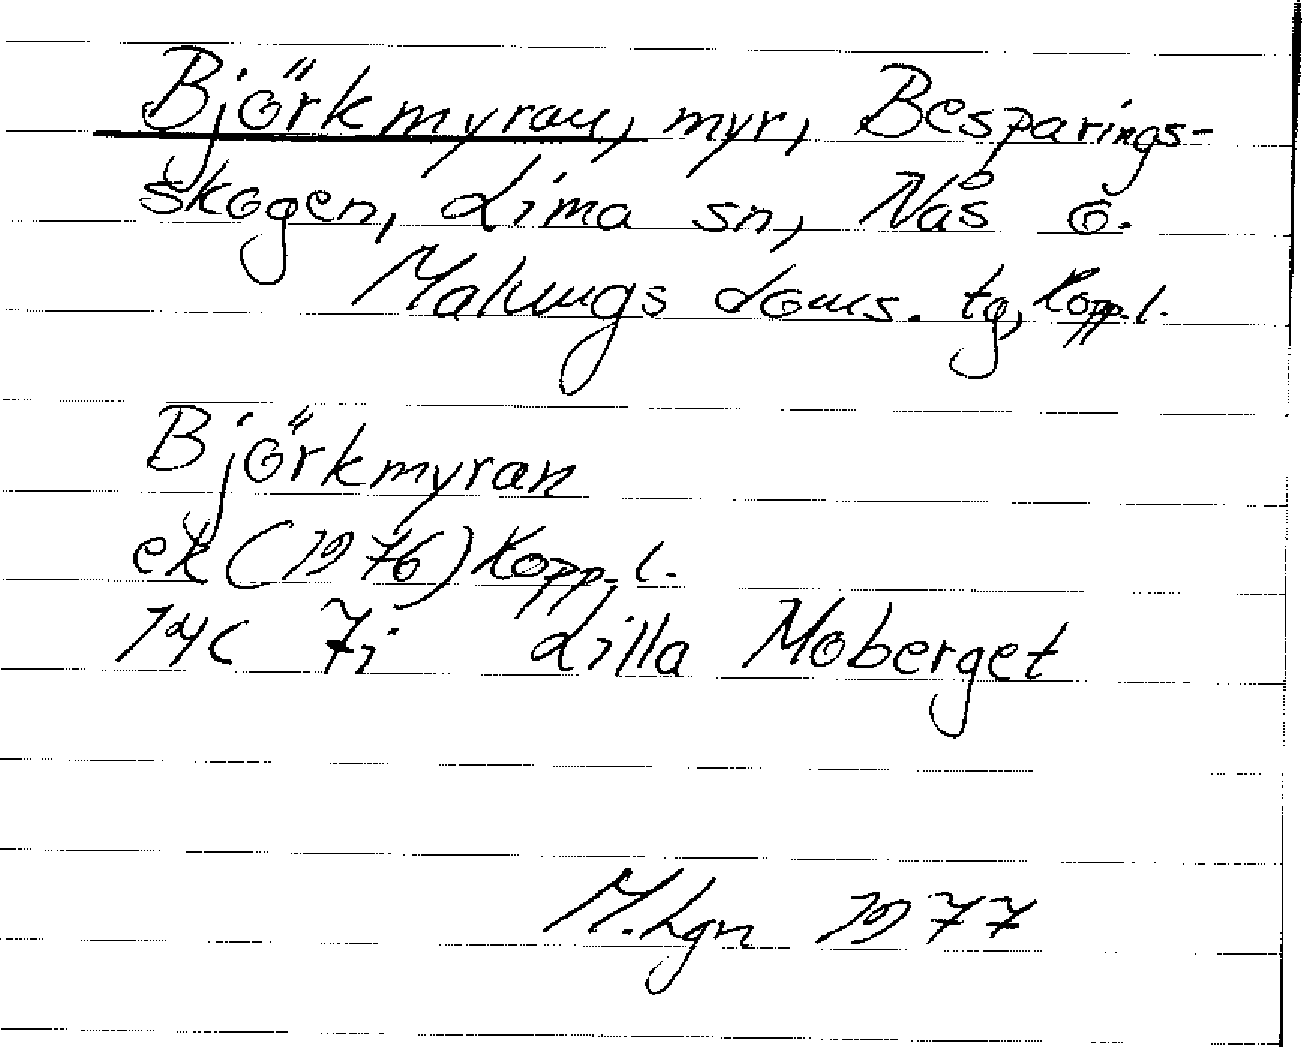 Björkmyran, myr, Besparings-
skogen, Lima sn, Nås o.
Malungs doms. tg, Kopp. l.
Björkmyran
ek (1976) Kopp. l.
14C 7i Lilla Moberget
M. Lgn 1977